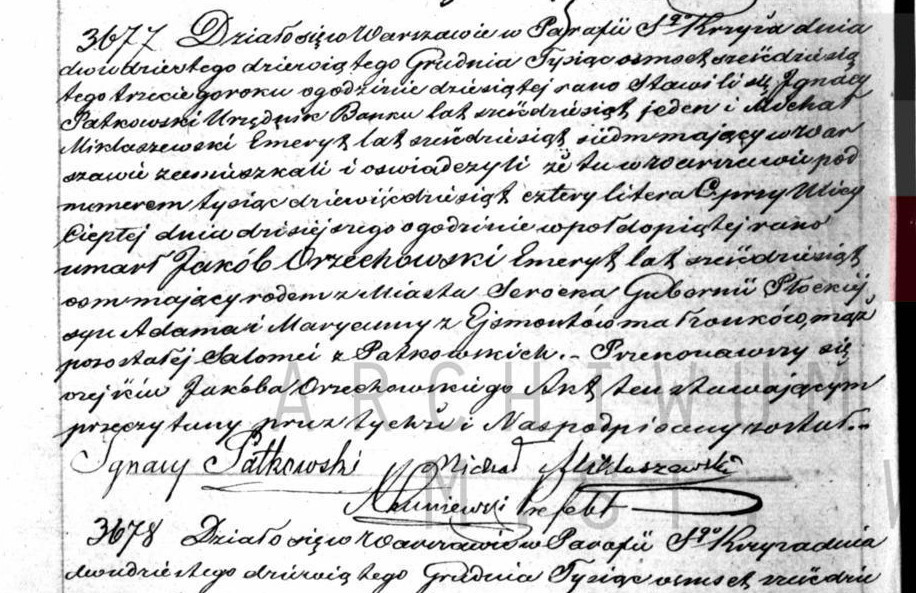 3677 Działo się w Warszawie w Parafii Sgo Krzyża dnia
dwudziestego dziewiątego Grudnia Tysiąc osmset sześćdziesią
tego trzeciego roku o godzinie dziesiątej rano Stawili się Ignacy
Patkowski Urzędnik Banku lat sześćdziesiąt jeden i Michał
Miklaszewski Emeryt lat sześćdziesiąt siedm mający w War
szawie zamieszkali i oswiadczyli że tu w Warszawie pod
numerem tysiąc dziewięćdziesiąt cztery litera C, przy Ulicy
Ciepłej dnia dzisiejszego o godzinie wpół do piątej rano
umarł Jakób Orzechowski Emeryt lat sześćdziesiąt
osm mający rodem z Miasta Serocka Gubernii Płockiej
syn Adama i Maryanny z Ejsmontów małżonków, mąż
pozostałej Salomei z Patkowskich. - Przekonawszy się
o zejściu Jakóba Orzechowskiego Akt ten stawającym
przeczytany przez tychże i Nas podpisany został. -
Ignacy Patkowski Michał Miklaszewski
Prefekt
3678 Działo się w Warszawie w Parafii Sgo Krzyża dnia
dwudziestego dziewiątego Grudnia Tysiąc osmset sześćdzie
ARCHIWUM